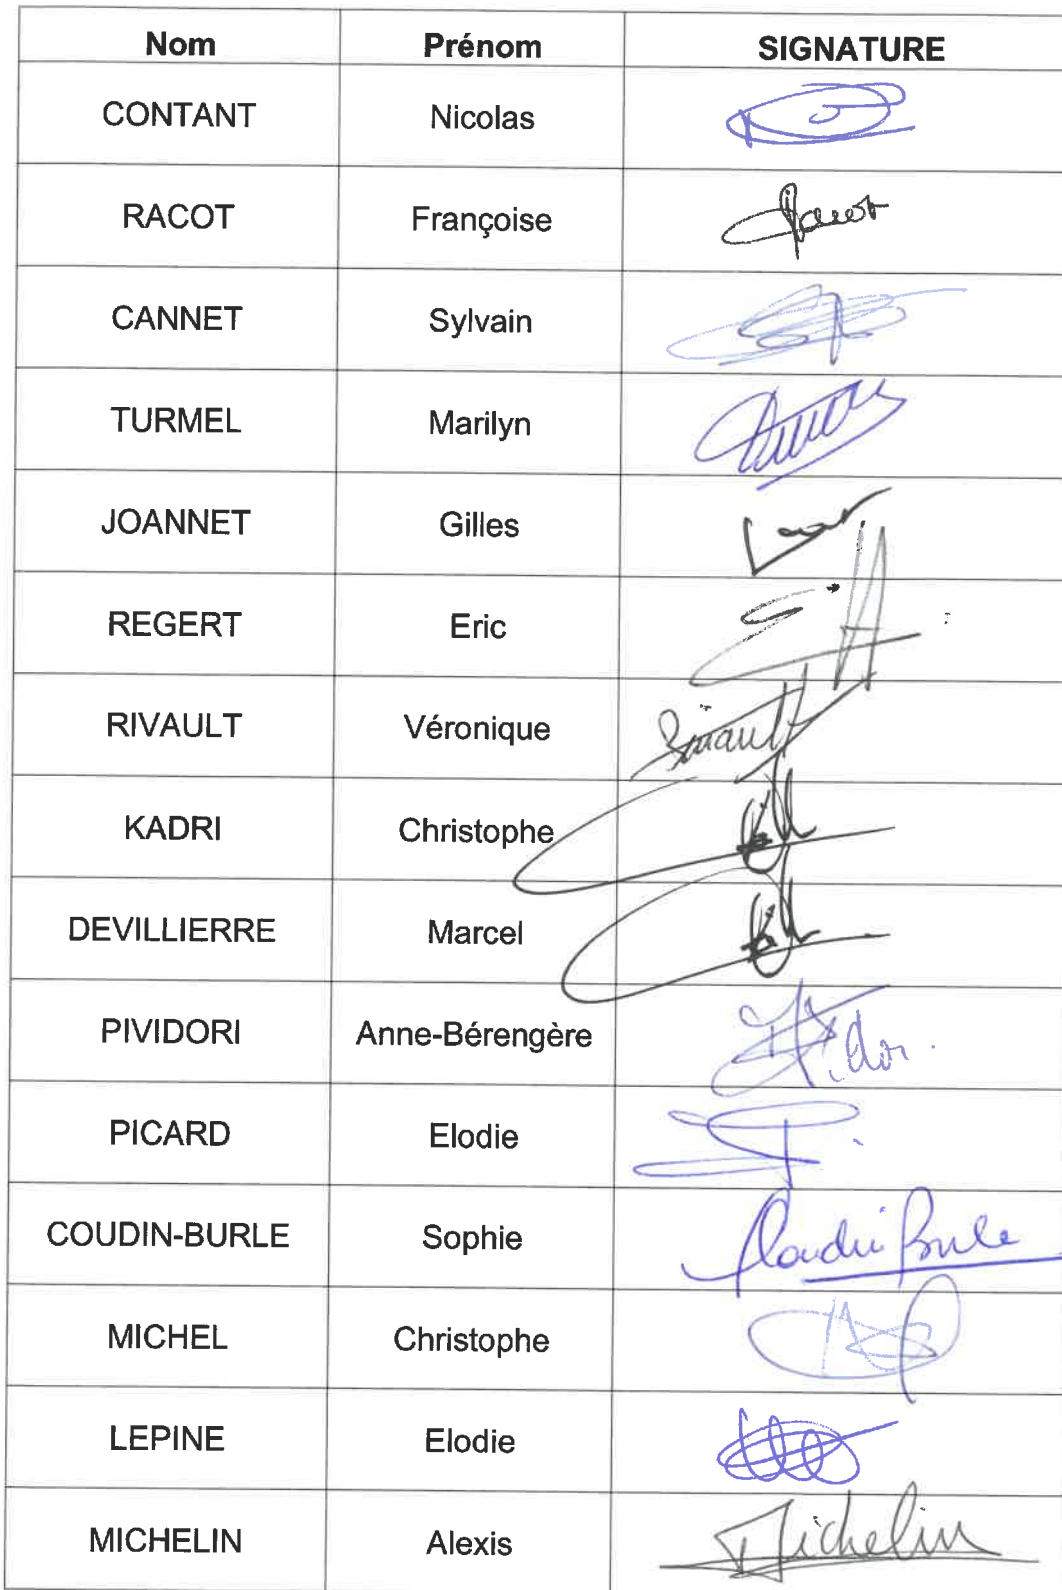 Nom Prénom SIGNATURE
CONTANT Nicolas
RACOT Françoise Racot
CANNET Sylvain
TURMEL Marilyn
JOANNET Gilles
REGERT Eric
RIVAULT Véronique Rivault
KADRI Christophe
DEVILLIERRE Marcel
PIVIDORI Anne-Bérengère
PICARD Elodie
COUDIN-BURLE Sophie Coudin Burle
MICHEL Christophe
LEPINE Elodie
MICHELIN Alexis Michelin